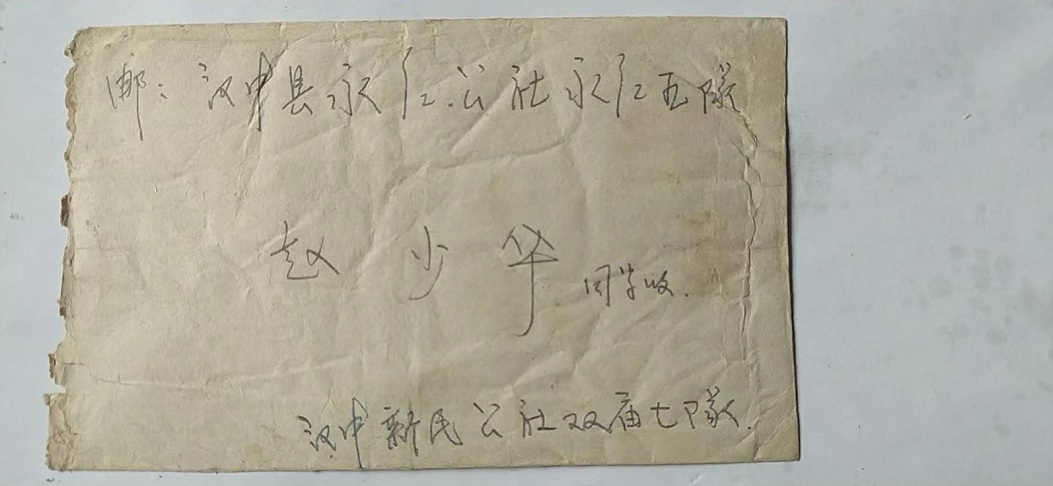 邮：汉中县永仁公社永仁五隊
赵少华同学收.
汉中新民公社双庙七隊.